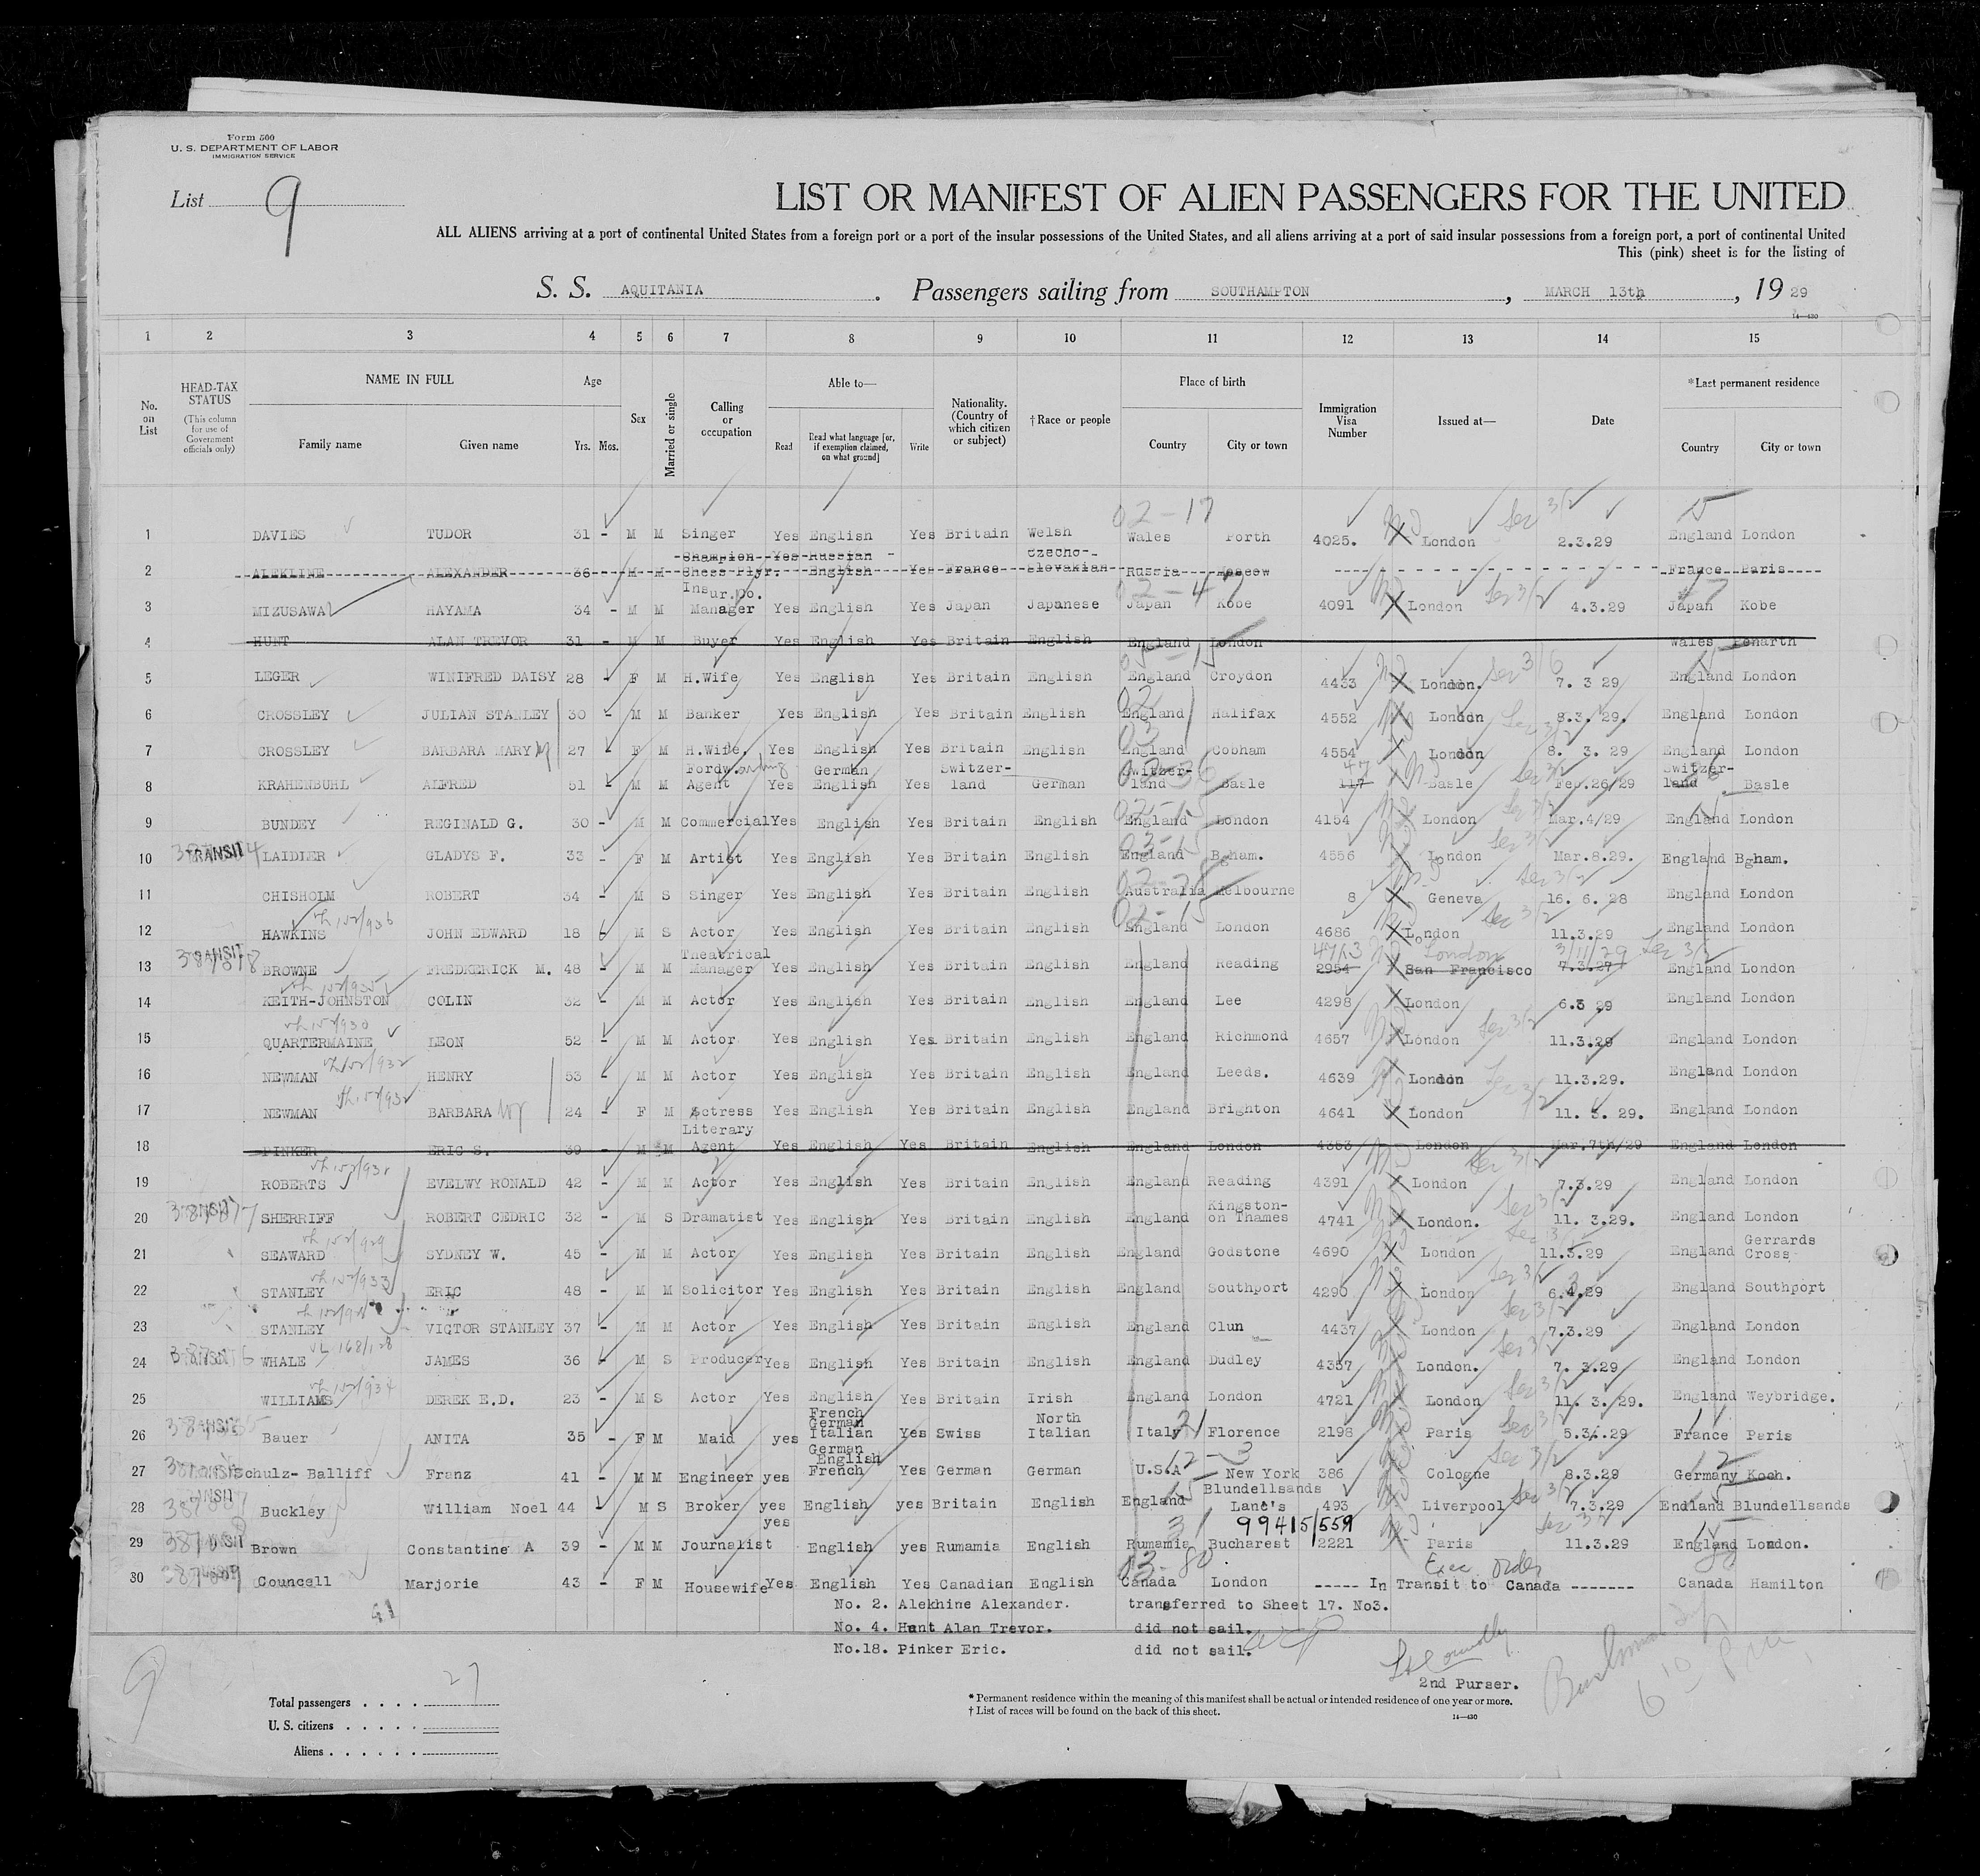 Form 500
U. S. DEPARTMENT OF LABOR
IMMIGRATION SERVICE
List 9
LIST OR MANIFEST OF ALIEN PASSENGERS FOR THE UNITED
ALL ALIENS arriving at a port of continental United States from a foreign port or a port of the insular possessions of the United States, and all aliens arriving at a port of said insular possessions from a foreign port, a port of continental United
This (pink) sheet is for the listing of
S. S. AQUITANIA . Passengers sailing from SOUTHAMPTON , MARCH 13th , 19 29
14—430
1 2 3 4 5 6 7 8 9 10 11 12 13 14 15
No. on List
HEAD-TAX STATUS (This column for use of Government officials only)
NAME IN FULL Family name Given name
Age Yrs. Mos.
Sex
Married or single
Calling or occupation
Able to— Read Read what language [or, if exemption claimed, on what ground] Write
Nationality. (Country of which citizen or subject)
† Race or people
Place of birth Country City or town
Immigration Visa Number
Issued at—
Date
*Last permanent residence Country City or town
02-17
1 DAVIES TUDOR 31 - M M Singer Yes English Yes Britain Welsh Wales Porth 4025. London 2.3.29 England London
2 ALEKLINE ALEXANDER 36 - M M Champion Chess Plyr. Yes Russian English Yes France Czecho-Slovakian Russia Moscow France Paris
3 MIZUSAWA HAYAMA 34 - M M Insur.Do. Manager Yes English Yes Japan Japanese Japan Kobe 4091 London 4.3.29 Japan Kobe
4 HUNT ALAN TREVOR 31 - M M Buyer Yes English Yes Britain English England London Wales Penarth
5 LEGER WINIFRED DAISY 28 - F M H.Wife Yes English Yes Britain English England Croydon 4433 London. 7. 3 29 England London
6 CROSSLEY JULIAN STANLEY 30 - M M Banker Yes English Yes Britain English England Halifax 4552 London 8.3. 29. England London
7 CROSSLEY BARBARA MARY 27 - F M H.Wife. Yes English Yes Britain English England Cobham 4554 London 8. 3. 29 England London
8 KRAHENBUHL ALFRED 51 - M M Fordw. Agent Yes German English Yes Switzer-land German Switzer-land Basle 117 47 Basle Feb.26/29 Switzer-land Basle
9 BUNDEY REGINALD G. 30 - M M Commercial Yes English Yes Britain English England London 4154 London Mar.4/29 England London
10 TRANSIT LAIDIER GLADYS F. 33 - F M Artist Yes English Yes Britain English England Bgham. 4556 London Mar.8.29. England Bgham.
11 CHISHOLM ROBERT 34 - M S Singer Yes English Yes Britain English Australia Melbourne 8 Geneva 16. 6. 28 England London
12 HAWKINS JOHN EDWARD 18 6 M S Actor Yes English Yes Britain English England London 4686 London 11.3.29 England London
13 BROWNE FREDKERICK M. 48 - M M Theatrical Manager Yes English Yes Britain English England Reading 2954 4713 San Francisco London 7.3.27 3/11/29 England London
14 KEITH-JOHNSTON COLIN 32 - M M Actor Yes English Yes Britain English England Lee 4298 London 6.3 29 England London
15 QUARTERMAINE LEON 52 - M M Actor Yes English Yes Britain English England Richmond 4657 London 11.3.29 England London
16 NEWMAN HENRY 53 - M M Actor Yes English Yes Britain English England Leeds. 4639 London 11.3.29. England London
17 NEWMAN BARBARA 24 - F M Actress Yes English Yes Britain English England Brighton 4641 London 11. 3. 29. England London
18 PINKER ERIC S. 39 - M M Literary Agent Yes English Yes Britain English England London 4353 London Mar.7th/29 England London
19 ROBERTS EVELWY RONALD 42 - M M Actor Yes English Yes Britain English England Reading 4391 London 7.3.29 England London
20 SHERRIFF ROBERT CEDRIC 32 - M S Dramatist Yes English Yes Britain English England Kingston-on Thames 4741 London. 11. 3.29. England London
21 SEAWARD SYDNEY W. 45 - M M Actor Yes English Yes Britain English England Godstone 4690 London 11.3.29 England Gerrards Cross
22 STANLEY ERIC 48 - M M Solicitor Yes English Yes Britain English England Southport 4290 London 6.4.29 England Southport
23 STANLEY VICTOR STANLEY 37 - M M Actor Yes English Yes Britain English England Clun 4437 London 7.3.29 England London
24 WHALE JAMES 36 - M S Producer Yes English Yes Britain English England Dudley 4357 London. 7. 3.29 England London
25 WILLIAMS DEREK E.D. 23 - M S Actor Yes English Yes Britain Irish England London 4721 London 11. 3. 29. England Weybridge.
26 Bauer ANITA 35 - F M Maid yes French German Italian Yes Swiss North Italian Italy Florence 2198 Paris 5.3.29 France Paris
27 Schulz- Balliff Franz 41 - M M Engineer yes German English French Yes German German U.S.A New York 386 Cologne 8.3.29 Germany Koch.
28 Buckley William Noel 44 - M S Broker yes English yes Britain English England Blundellsands Lanc's 493 Liverpool 7.3.29 Endland Blundellsands
99415/559
29 Brown Constantine A 39 - M M Journalist yes English yes Rumamia English Rumamia Bucharest 2221 Paris 11.3.29 England London.
Exec Order
30 Councell Marjorie 43 - F M Housewife Yes English Yes Canadian English Canada London ----- In Transit to Canada ------- Canada Hamilton
No. 2. Alekhine Alexander. transferred to Sheet 17. No3.
No. 4. Hunt Alan Trevor. did not sail.
No.18. Pinker Eric. did not sail.
2nd Purser.
9
Total passengers . . . . 27
U. S. citizens . . . . .
Aliens . . . . . .
* Permanent residence within the meaning of this manifest shall be actual or intended residence of one year or more.
† List of races will be found on the back of this sheet.
14—430